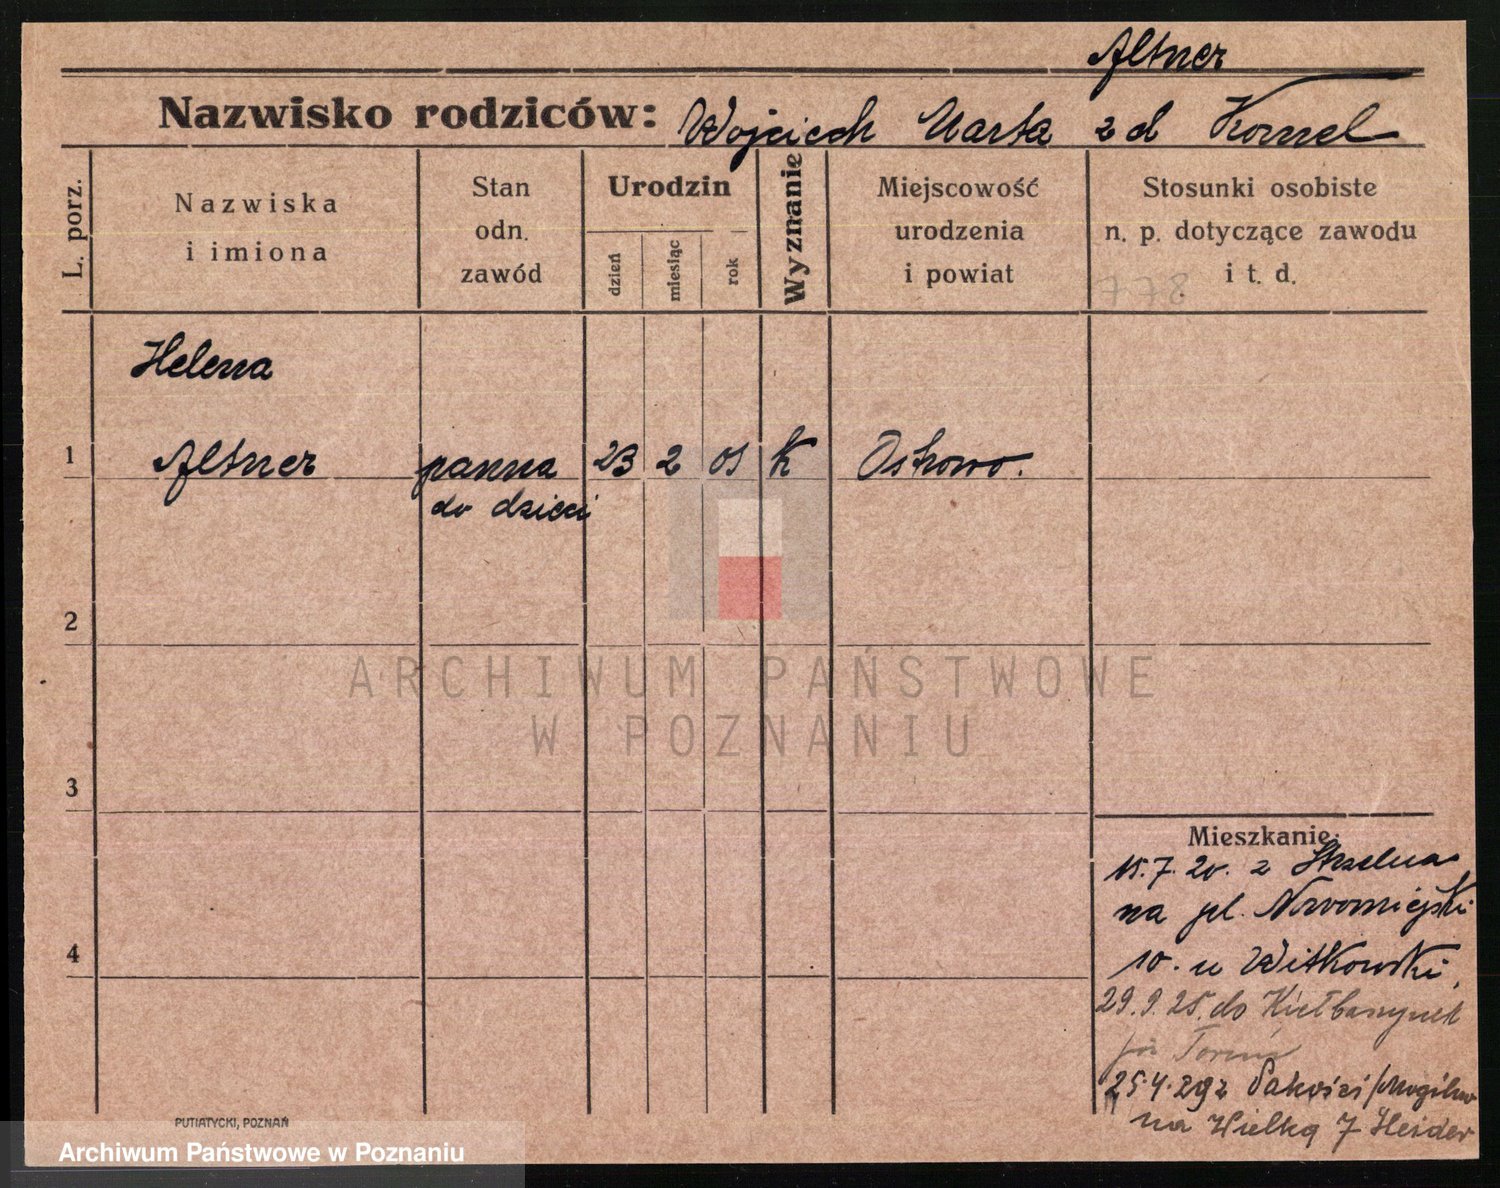 Altner
Nazwisko rodziców: Wojciech Marta z d Kornel
L. porz.
Nazwiska
i imiona
Stan
odn.
zawód
Urodzin
dzień
miesiąc
rok
Wyznanie
Miejscowość
urodzenia
i powiat
Stosunki osobiste
n. p. dotyczące zawodu
i t. d.
778
Helena
1 Altner panna 23 2 01 k Ostrowo.
do dzieci
2
3
4
Mieszkanie:
15.7.20. z Strzelna
na pl. Nowomiejski
10. u Witkowski,
29.9.25. do
Toruń
25.4.29 z Pakości/Mogilno
na Wielką 7 Heider
PUTIATYCKI, POZNAŃ
ARCHIWUM PAŃSTWOWE
W POZNANIU
Archiwum Państwowe w Poznaniu